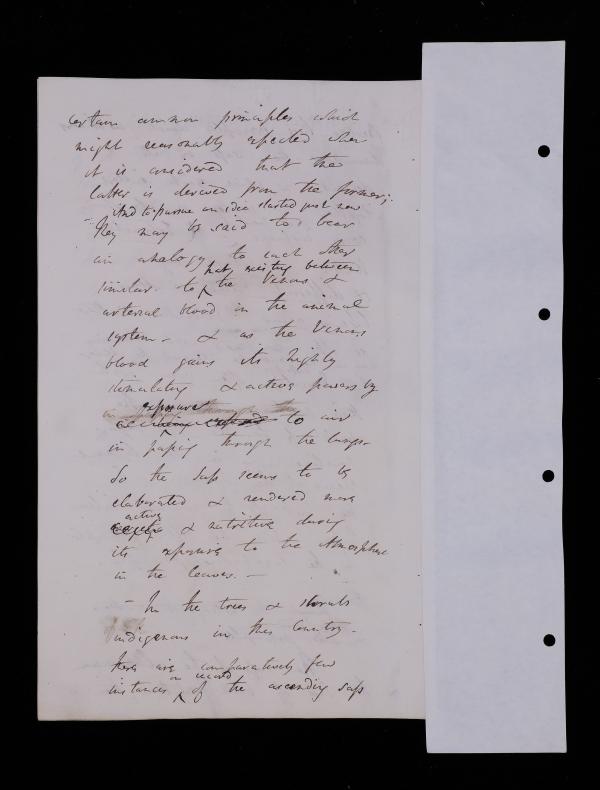 certain common principles which
might reasonably expected when
it is considered that the
latter is derived from the former;
And to pursue an idea started just now
They may be said to bear
an analogy to each other
that existing between
similar to the Venous &
arterial blood in the animal
system. & as the Venous
blood gains its highly
stimulating & active powers by
exposure
to air
in passing through the lungs.
So the sap seems to be
elaborated & rendered more
active
& nutritive during
its exposure to the Atmosphere
in the leaves. —
— In the trees & shrubs
indigenous in this Country.
there are comparatively few
on record
instances of the ascending sap